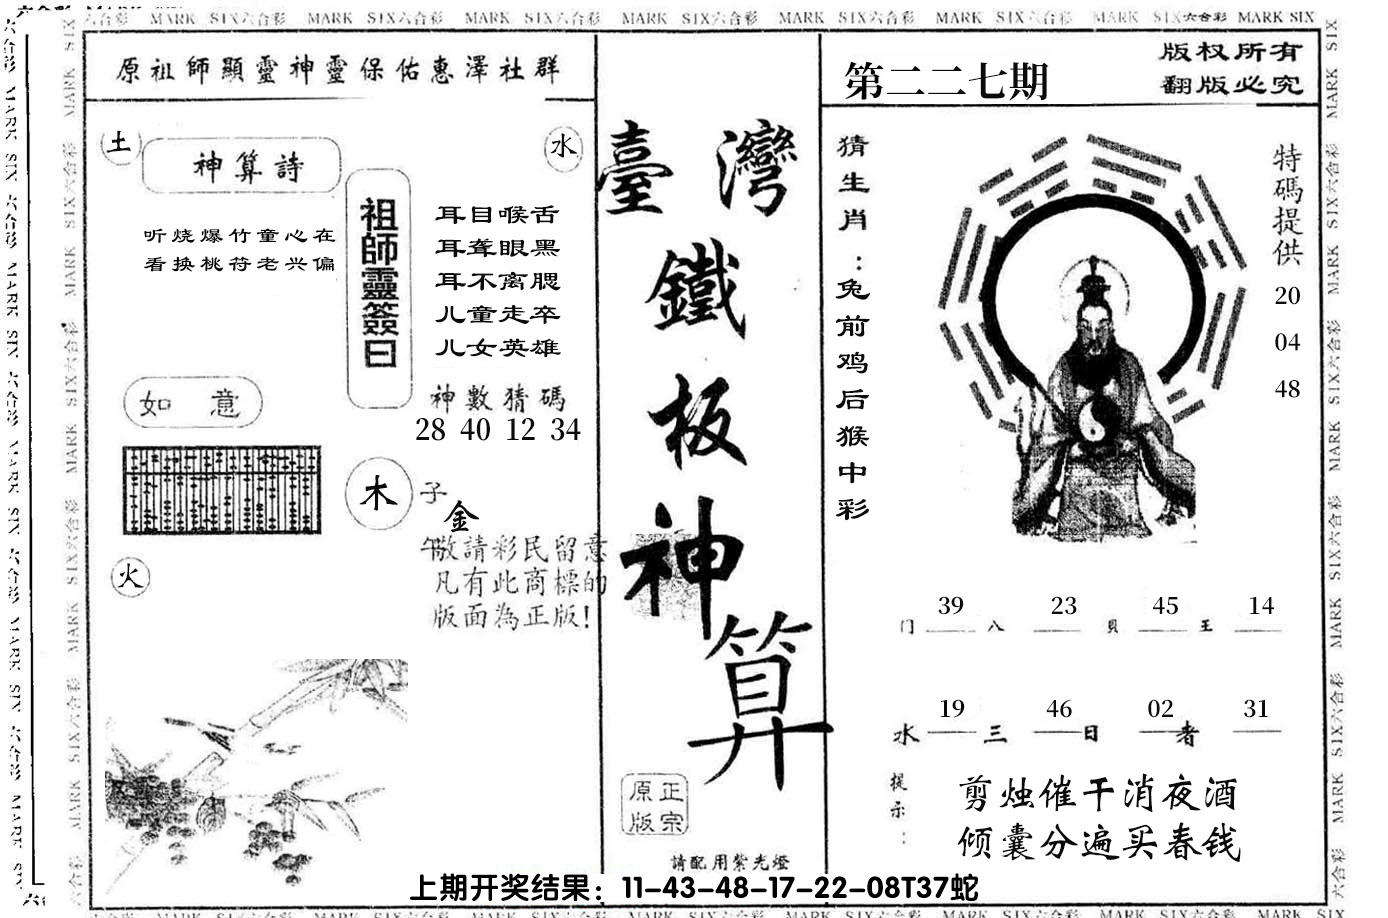 MARK SIX六合彩 MARK SIX六合彩 MARK SIX六合彩 MARK SIX六合彩 MARK SIX六合彩 MARK SIX六合彩 MARK SIX六合彩 MARK SIX
原祖師顯靈神靈保佑惠澤社群
土
神算詩
水
听烧爆竹童心在
看换桃苻老兴偏
祖師靈簽曰
耳目喉舌
耳聋眼黑
耳不离腮
儿童走卒
儿女英雄
神數猜碼
28 40 12 34
如 意
木
子
金
午
敬請彩民留意
凡有此商標的
版面為正版!
火
臺灣
鐵
板
神
算
正宗
原版
請配用紫光燈
第二二七期
版权所有
翻版必究
猜生肖:兔前鸡后猴中彩
特碼提供
20
04
48
39 23 45 14
门 八 貝 王
19 46 02 31
水 三 日 者
提示:
剪烛催干消夜酒
倾囊分遍买春钱
上期开奖结果：11-43-48-17-22-08T37蛇